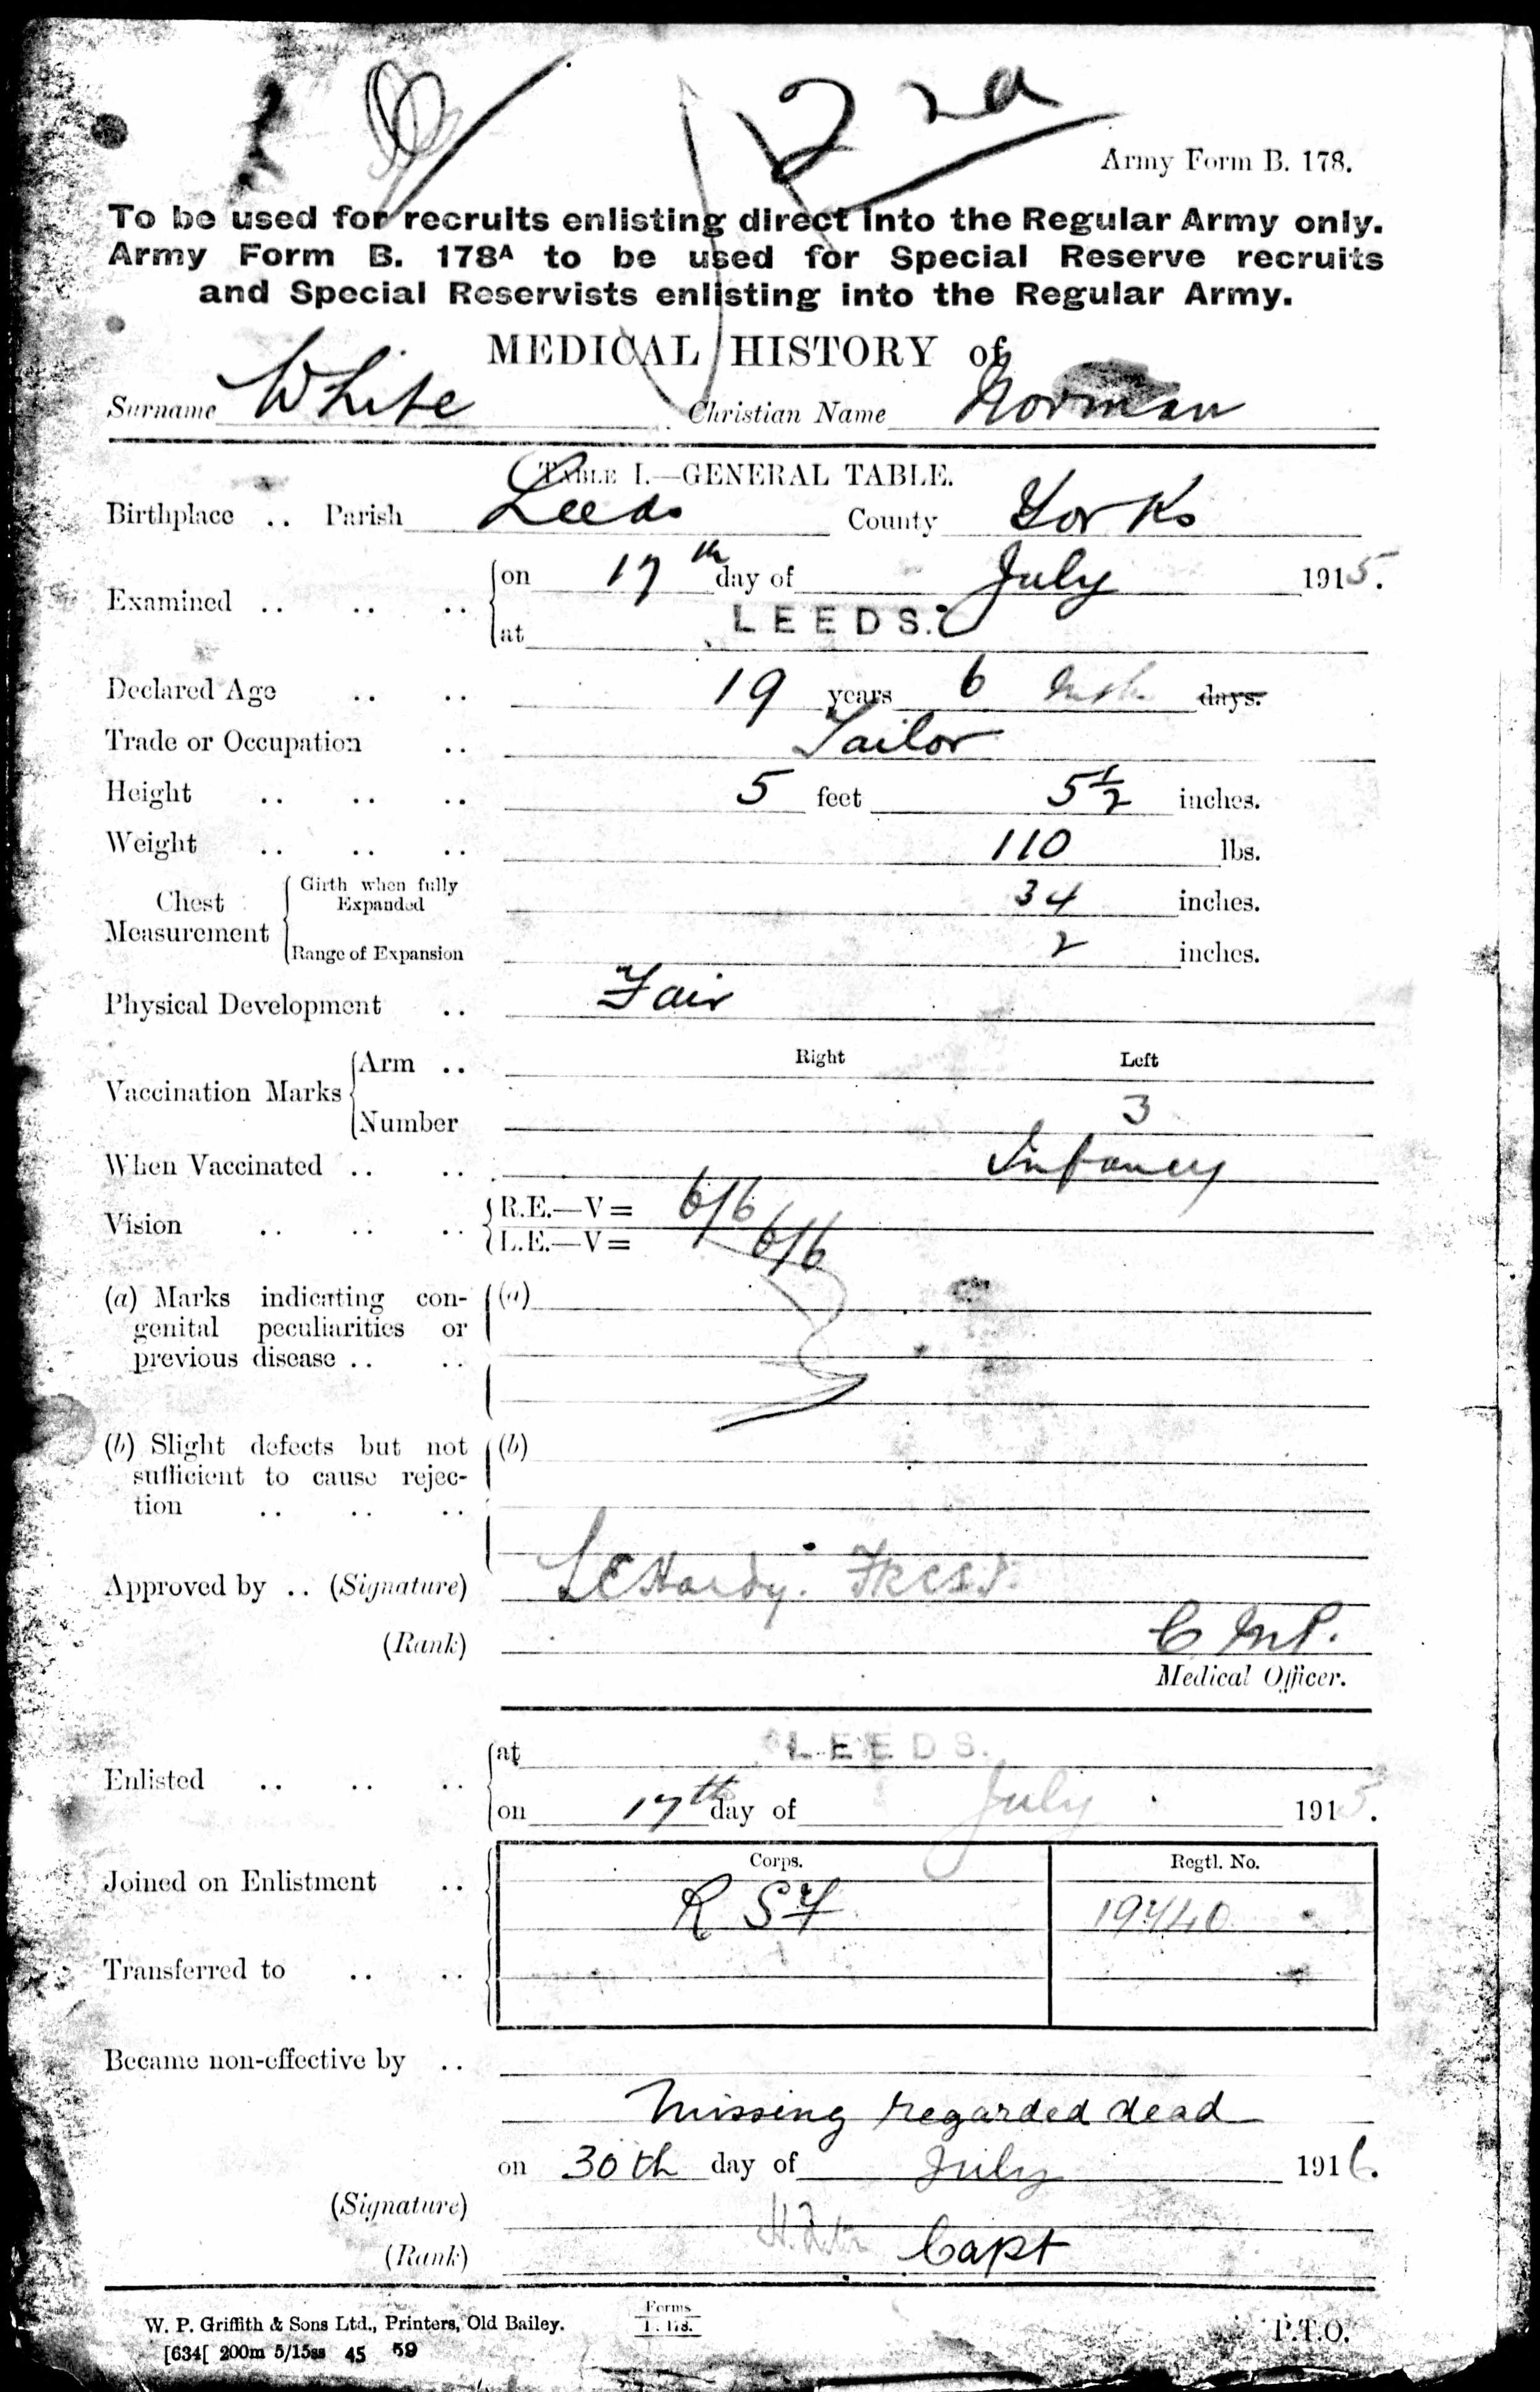 2nd
Army Form B. 178.
To be used for recruits enlisting direct into the Regular Army only.
Army Form B. 178A to be used for Special Reserve recruits
and Special Reservists enlisting into the Regular Army.
MEDICAL HISTORY of
Surname White Christian Name Norman
TABLE I.—GENERAL TABLE.
Birthplace .. Parish Leeds County Yorks
Examined .. .. .. on 17th day of July 1915.
at LEEDS.
Declared Age .. .. 19 years 6 mths days.
Trade or Occupation .. Tailor
Height .. .. .. 5 feet 5½ inches.
Weight .. .. .. 110 lbs.
Chest Measurement Girth when fully Expanded 34 inches.
Range of Expansion 2 inches.
Physical Development .. Fair
Vaccination Marks Arm .. Right Left
Number 3
When Vaccinated .. .. Infancy
Vision .. .. .. R.E.—V= 6/6
L.E.—V= 6/6
(a) Marks indicating con- (a)
genital peculiarities or
previous disease .. ..
(b) Slight defects but not (b)
sufficient to cause rejec-
tion .. .. ..
Approved by .. (Signature) Hardy.
(Rank) C.M.P.
Medical Officer.
Enlisted .. .. .. at LEEDS.
on 17th day of July 1915.
Corps. Regtl. No.
Joined on Enlistment .. R S F
Transferred to .. ..
Became non-effective by ..
Missing regarded dead
on 30th day of July 1916.
(Signature)
(Rank) Capt
W. P. Griffith & Sons Ltd., Printers, Old Bailey.
Forms
P.T.O.
[634[ 200m 5/15ss 45 59